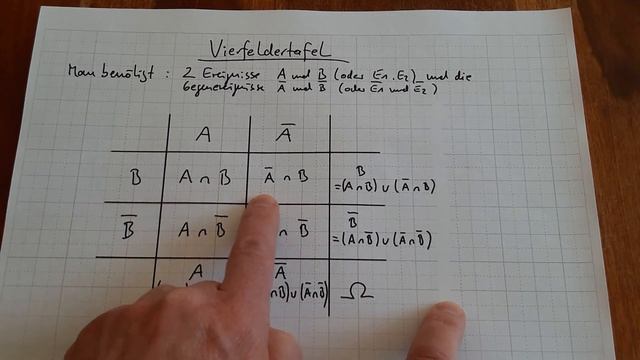 Vierfeldertafel
Man benötigt : 2 Ereignisse A und B (oder E1, E2) und die
Gegenereignisse A̅ und B̅ (oder E̅1 und E̅2)
A A̅
B A ∩ B A̅ ∩ B B
=(A∩B) ∪ (A̅∩B)
B̅ A ∩ B̅ ∩ B̅ B̅
=(A∩B̅) ∪ (A̅∩B̅)
A A̅
∩B) ∪ (A̅∩B̅) Ω